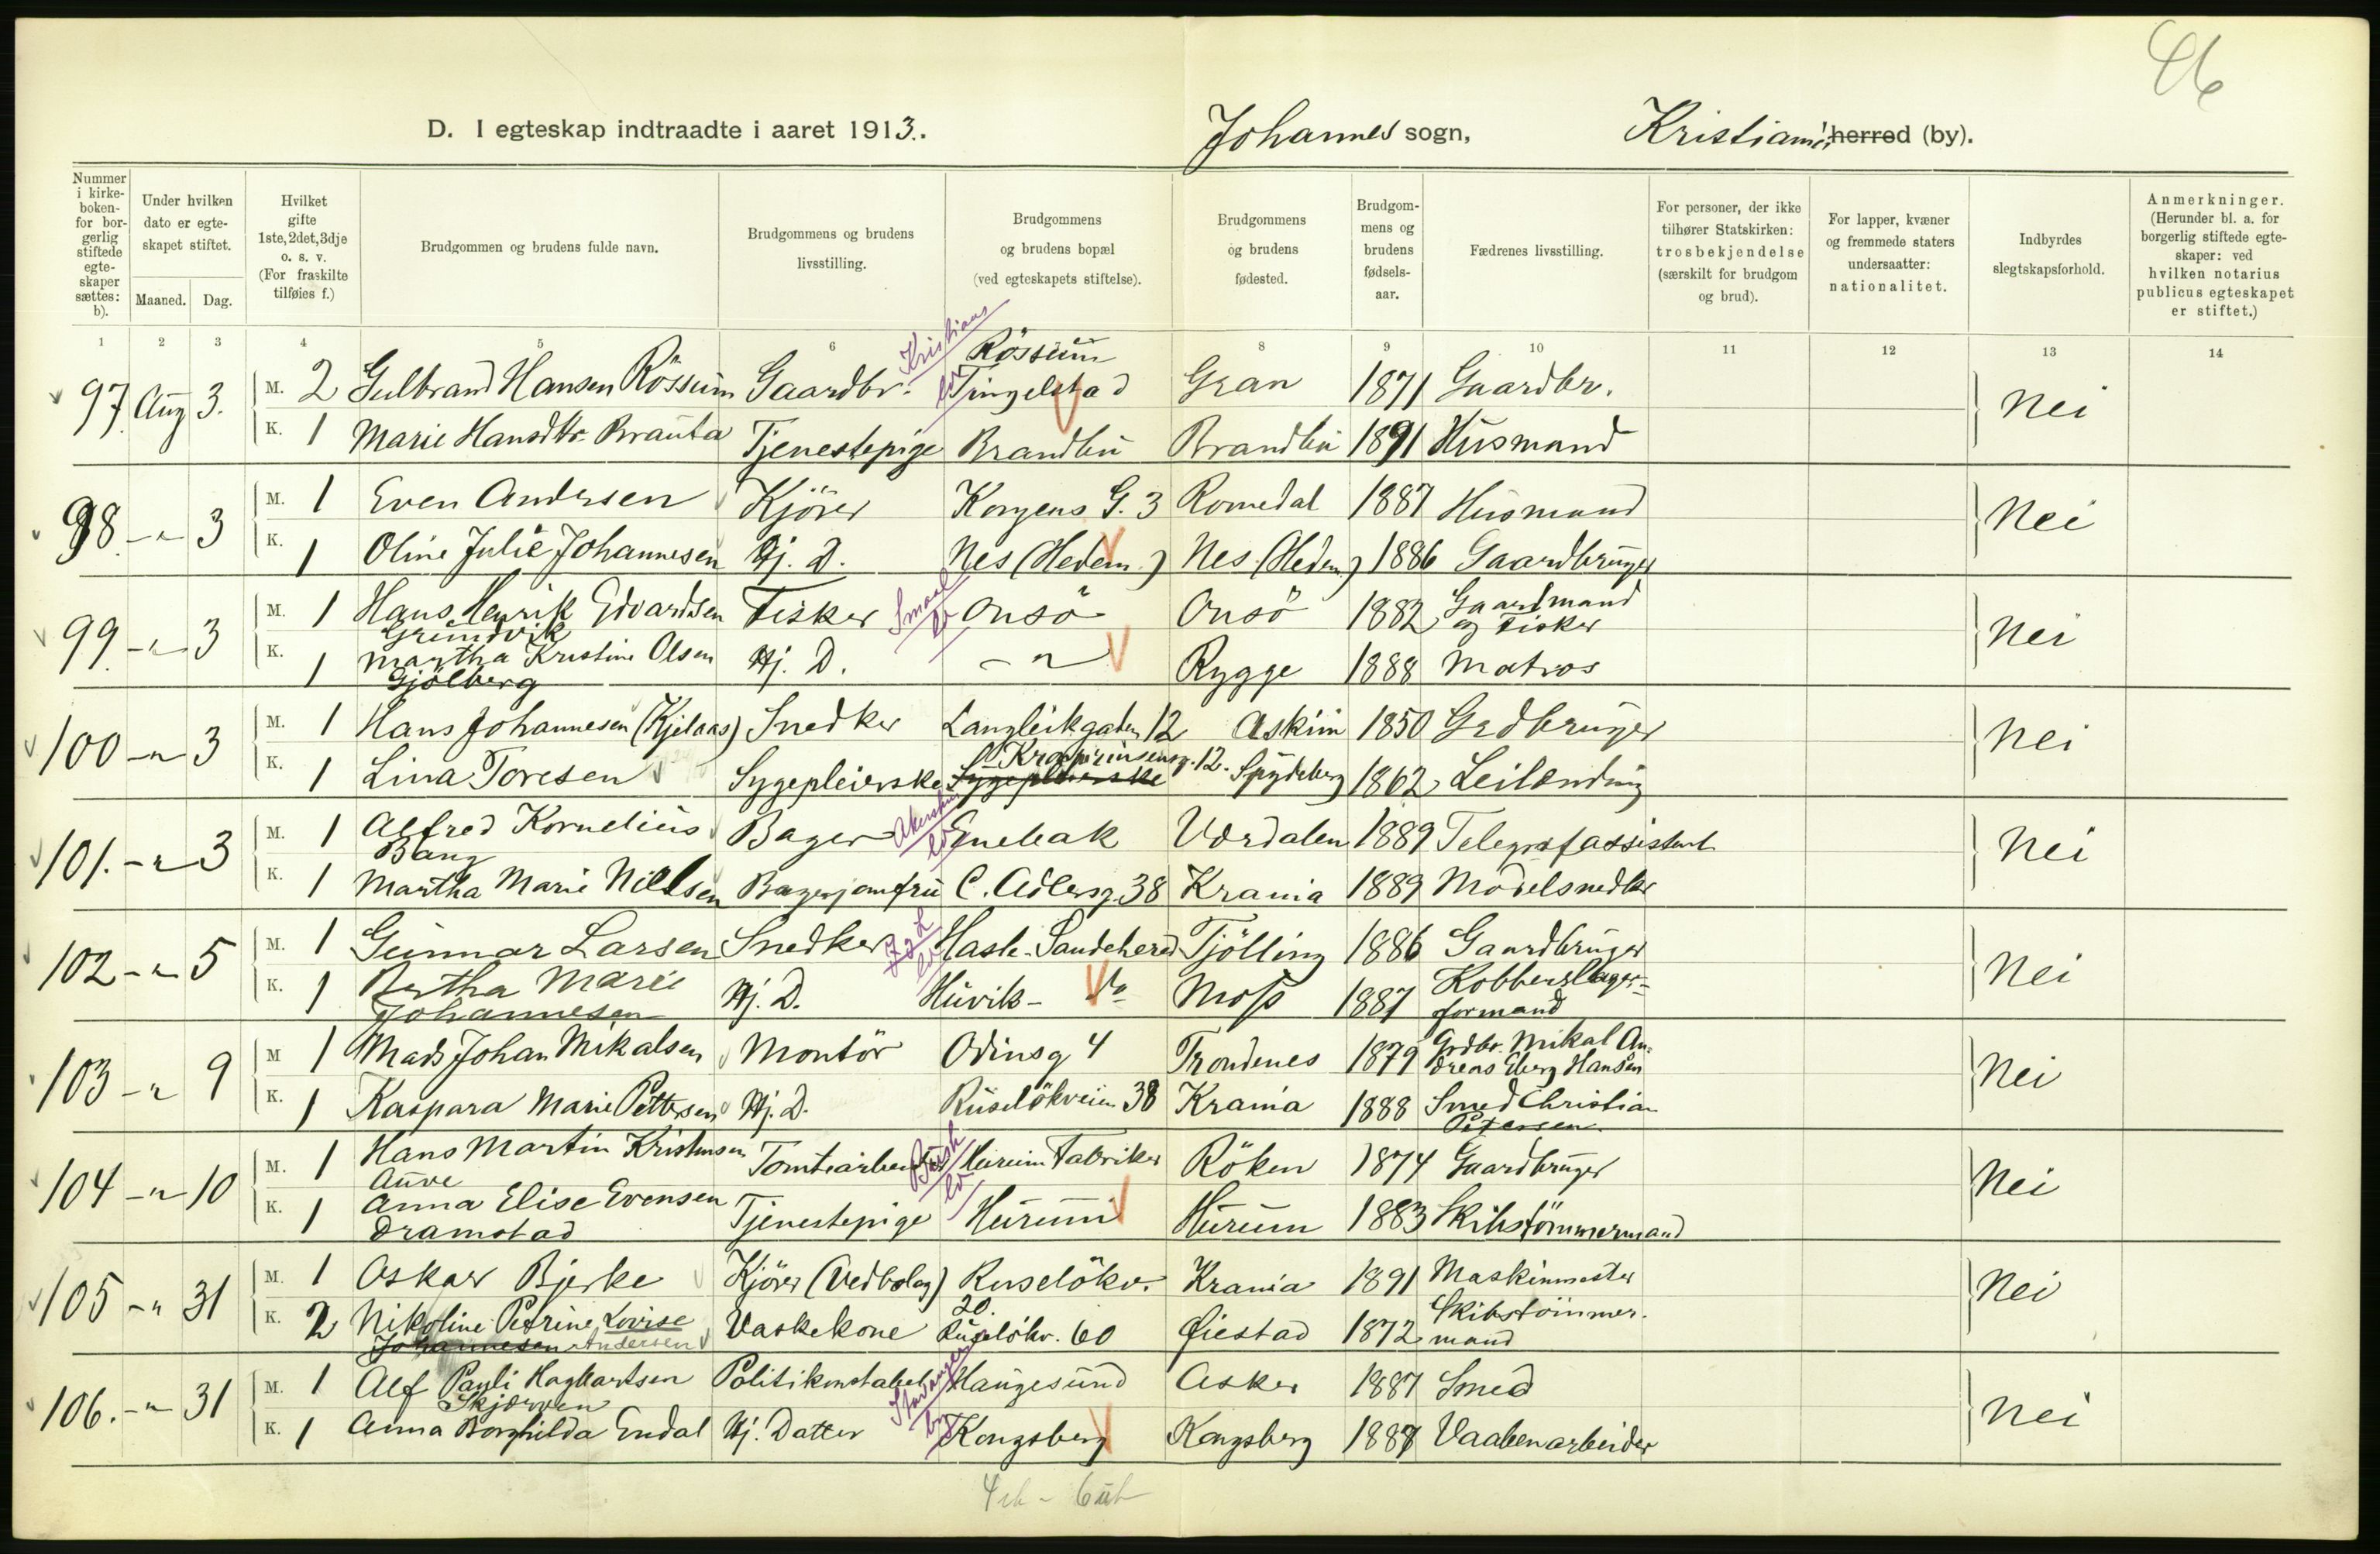 46
D. I egteskap indtraadte i aaret 1913. Johannes sogn, Kristiania herred (by).
Nummer i kirke-boken- for bor-gerlig stiftede egte-skaper sættes: b).
Under hvilken dato er egte-skapet stiftet.
Maaned. Dag.
Hvilket gifte 1ste, 2det, 3dje o. s. v. (For fraskilte tilføies f.)
Brudgommen og brudens fulde navn.
Brudgommens og brudens livsstilling.
Brudgommens og brudens bopæl (ved egteskapets stiftelse).
Brudgommens og brudens fødested.
Brudgom-mens og brudens fødsels-aar.
Fædrenes livsstilling.
For personer, der ikke tilhører Statskirken: trosbekjendelse (særskilt for brudgom og brud).
For lapper, kvæner og fremmede staters undersaatter: nationalitet.
Indbyrdes slegtskapsforhold.
Anmerkninger. (Herunder bl. a. for borgerlig stiftede egte-skaper: ved hvilken notarius publicus egteskapet er stiftet.)
1 2 3 4 5 6 8 9 10 11 12 13 14
Kristians
Røssum
97 Aug 3. M. 2 Gulbrand Hansen Røssum Gaardbr. Tingelstad Gran 1871 Gaardbr. Nei
K. 1 Marie Hansdtr. Brauta Tjenestepige Brandbu Brandbu 1891 Husmand
98 -"- 3 M. 1 Even Andersen Kjörer Kongens G. 3 Romedal 1887 Husmand Nei
K. 1 Oline Julie Johannesen Hj. D. Nes (Hedem.) Nes (Hedem.) 1886 Gaardbruger
99 -"- 3 M. 1 Hans Henrik Edvardsen Fisker Smaal Onsö Onsö 1882 Gaardmand og Fisker Nei
Grimsvik
K. 1 Martha Kristine Olsen Hj. D. -"- Rygge 1888 Matros
Gjölberg
100 -"- 3 M. 1 Hans Johannesen (Kjelaas) Snedker Langleikgaten 12 Askim 1850 Grdbruger Nei
K. 1 Lina Toresen Sygepleierske Sygepleierske Kronprinsensg. 12. Spydeberg 1862 Leilænding
101. -"- 3 M. 1 Alfred Kornelius Bager Akershus Enebak Værdalen 1889 Telegrafassistent Nei
Bang
K. 1 Martha Marie Nielsen Bagerjomfru C. Adlersg. 38 Krania 1889 Modelsnedker
102 -"- 5 M. 1 Gunnar Larsen Snedker J & L Hasle - Sandehered Tjölling 1886 Gaardbruger Nei
K. 1 Bertha Marie Hj. D. Huvik - do Moss 1887 Kobberslager-
Johannesen formand
103 -"- 9 M 1 Mads Johan Mikalsen Montör Odinsg 4 Trondenes 1879 Grdbr. Mikal An-
dreas Eberg Hansen Nei
K. 1 Kaspara Marie Pettersen Hj. D. Ruselökveien 38 Krania 1888 Smed Christian
Petersen
104 -"- 10 M. 1 Hans Martin Kristensen Tomtearbeider Busk Hurum Fabriker Röken 1874 Gaardbruger Nei
Auve
K. 1 Anna Elise Evensen Tjenestepige Hurum Hurum 1883 Skibstömmermand
Dramstad
105 -"- 31 M. 1 Oskar Bjerke Kjörer (Vedbolag) Ruselökv. Krania 1891 Maskinmester Nei
20.
K. 2 Nikoline Petrine Lovise Vaskekone Ruselökv. 60 Øiestad 1872 Skibstömmer-
Johannesen Andersen mand
106. -"- 31 M. 1 Alf Pauli Hagbartsen Politikonstabel Stavanger Haugesund Asker 1887 Smed Nei
Skjærven
K. 1 Anna Borghilda Endal Hj. Datter Kongsberg Kongsberg 1887 Vaabenarbeider